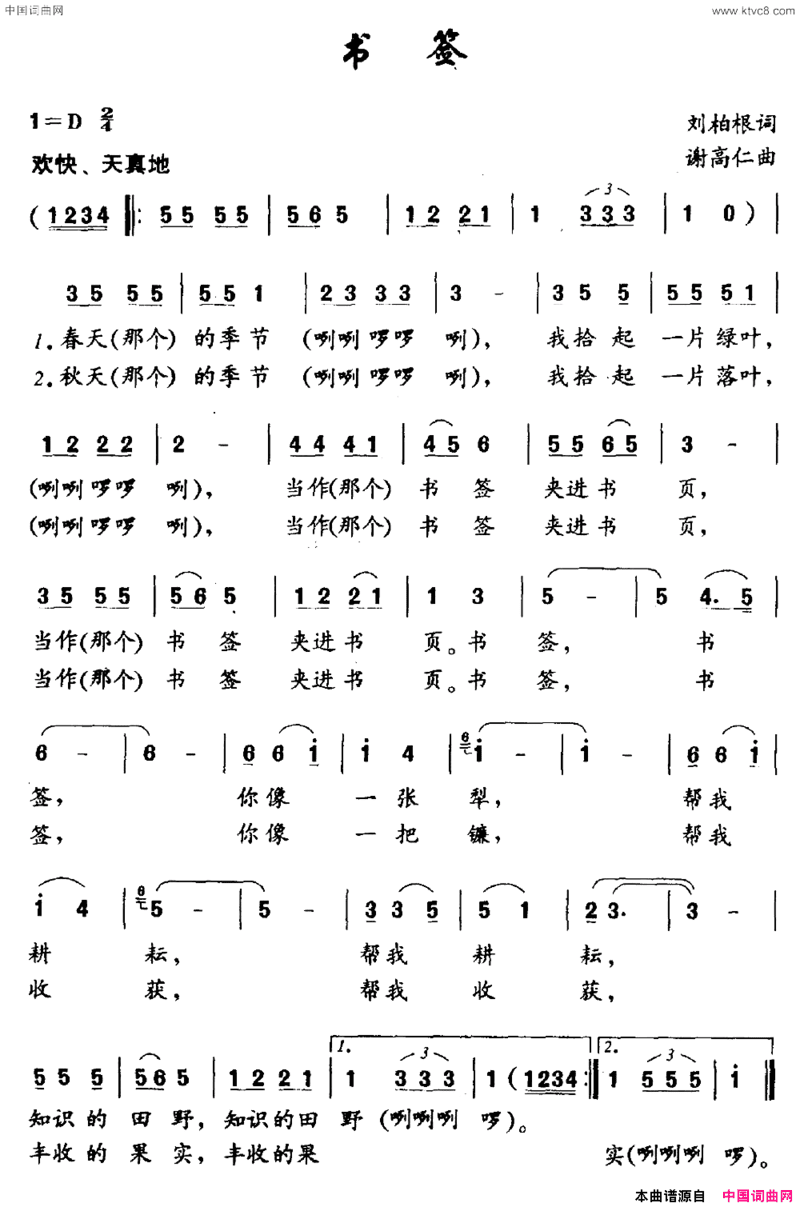 中国词曲网 www.ktvc8.com
书 签
1=D 2/4 刘柏根词
欢快、天真地 谢高仁曲
(1234 ‖: 55 55 | 565 | 12 21 | 1 333 | 1 0) |
35 55 | 55 1 | 23 33 | 3 - | 35 5 | 55 51 |
1.春天(那个)的季节(咧咧啰啰咧),我拾起一片绿叶,
2.秋天(那个)的季节(咧咧啰啰咧),我拾起一片落叶,
12 22 | 2 - | 44 41 | 45 6 | 55 65 | 3 - |
(咧咧啰啰咧),当作(那个)书签夹进书页,
(咧咧啰啰咧),当作(那个)书签夹进书页,
35 55 | 56 5 | 12 21 | 1 3 | 5 - | 5 4. 5 |
当作(那个)书签夹进书页。书签,书
当作(那个)书签夹进书页。书签,书
6 - | 6 - | 6 6 i | i 4 | 6 i - | i - | 6 6 i |
签,你像一张犁,帮我
签,你像一把镰,帮我
i 4 | 6 5 - | 5 - | 3 3 5 | 5 1 | 2 3. | 3 - |
耕耘,帮我耕耘,
收获,帮我收获,
1. 3 2. 3
55 5 | 56 5 | 12 21 | 1 333 | 1 (1234 :‖ 1 555 | i ‖
知识的田野,知识的田野(咧咧咧啰)。
丰收的果实,丰收的果 实(咧咧咧啰)。
本曲谱源自 中国词曲网